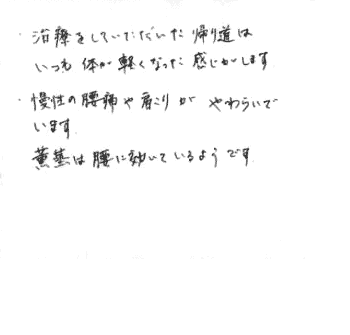 ・治療をしていただいた帰り道は
いつも体が軽くなった感じがします
・慢性の腰痛や肩こりが やわらいで
います
薫蒸は腰に効いているようです